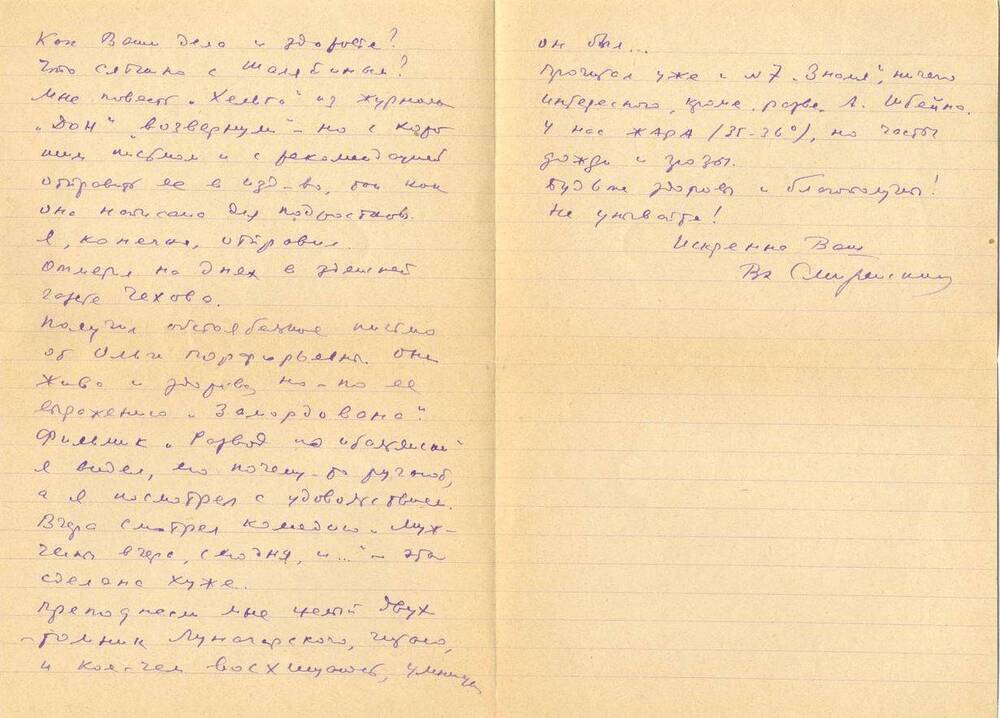 Как Ваши дела и здоровье?
Что слышно с Шалябиным?
Мне повесть „Хельга" из журнала
„Дон" „возвернули" – но с хорошим
письмом и с рекомендацией
отправить ее в изд-во, так как
она написана для подростков.
Я, конечно, отправил.
Отмечал на днях в здешней
газете Чехова.
Получил обстоятельное письмо
от Ольги Порфирьевны. Она
жива и здорова, но – по ее
выражению „Замордована".
Фильмик „Развод по-итальянски"
я видел, его почему-то ругают,
а я посмотрел с удовольствием.
Вчера смотрел комедию „Муж-
чины вчера, сегодня, и..." – это
сделано хуже.
Преподнесли мне целый двух
-томник Луначарского, читаю,
и кое-чем восхищаюсь, умница
он был...
Прочитал уже и №7 „Знамя", ничего
интересного, кроме, разве, А. Штейна.
У нас ЖАРА (35-36°), но часты
дожди и грозы.
Будьте здоровы и благополучны!
Не унывайте!
Искренно Ваш
Вл Смиренский